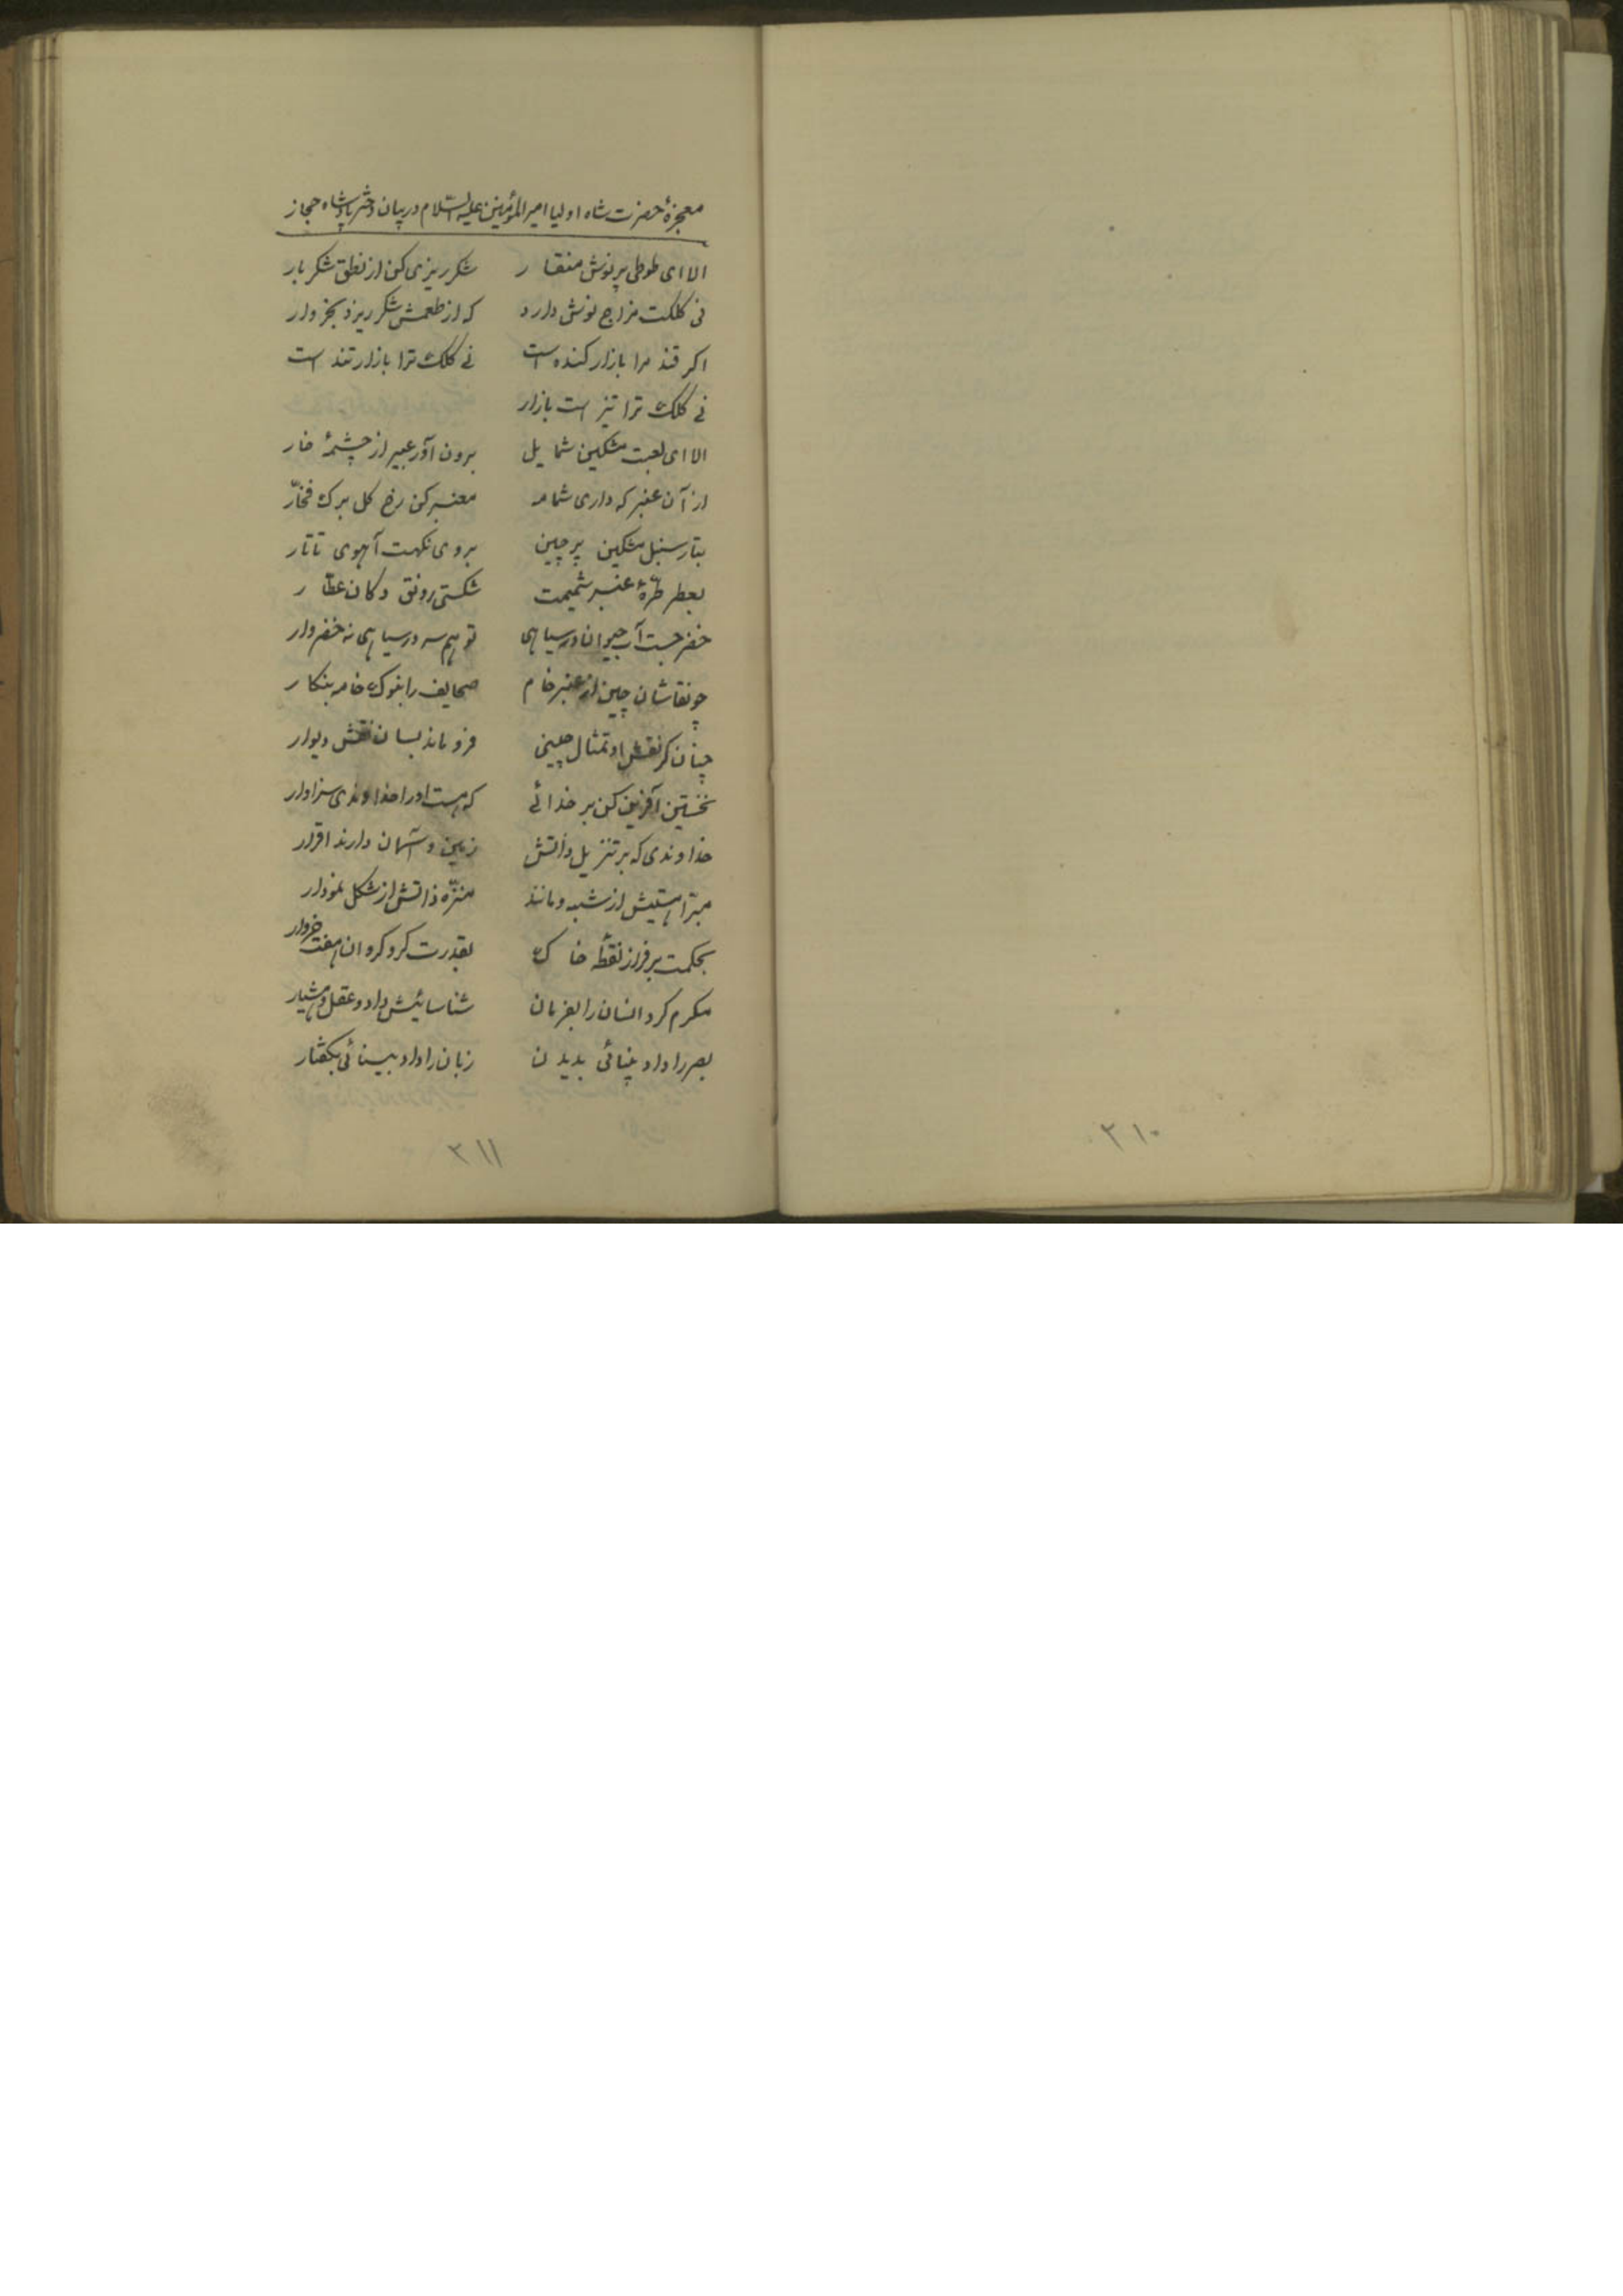 معجزهٔ حضرت شاه اولیا امیرالمؤمنین علیه السلام در بیان دختر پادشاه حجاز
الا ای طوطی پرنوش منقار شکر ریزی کن از نطق شکر بار
نی کلکت مزاج نوش دارد که از طعمش شکر ریزد بخروار
اکر قند مرا بازار کنده است نی کلک ترا بازار تند است
نی کلک ترا تیز است بازار
الا ای لعبت مشکین شمایل برون آور عبیر از چشمهٔ خار
از آن عنبر که داری شمامه معنبر کن رخ کل برک فخّار
بتار سنبل مشکین پرچین بروی نکهت آهوی تاتار
بعطر طرّهٔ عنبر شمیمت شکستی رونق دکان عطّار
خضر جست آب حیوان در سیاهی تو هم سر در سیاهی نه خضروار
چو نقاشان چین از عنبر خام صحایف را بنوک خامه بنکار
چنان کز نقش او تمثال چینی فرو ماند بسان نقش دیوار
نخستین آفرین کن بر خدائی که هست او را خداوندی سزاوار
خداوندی که بر تنزیل ذاتش زمین و آسمان دارند اقرار
مبرّا هستیش از شبه و مانند منزّه ذاتش از شکل نمودار
بحکمت بر فراز نقطهٔ خاک بقدرت کرد کردان هفت
مکرم کرد انسان را بفرمان شناسائیش داد و عقل و هشیار
بصر را داد بینائی بدیدن زبان را داد بینائی بکفتار
۳۱۱
۳۱۰